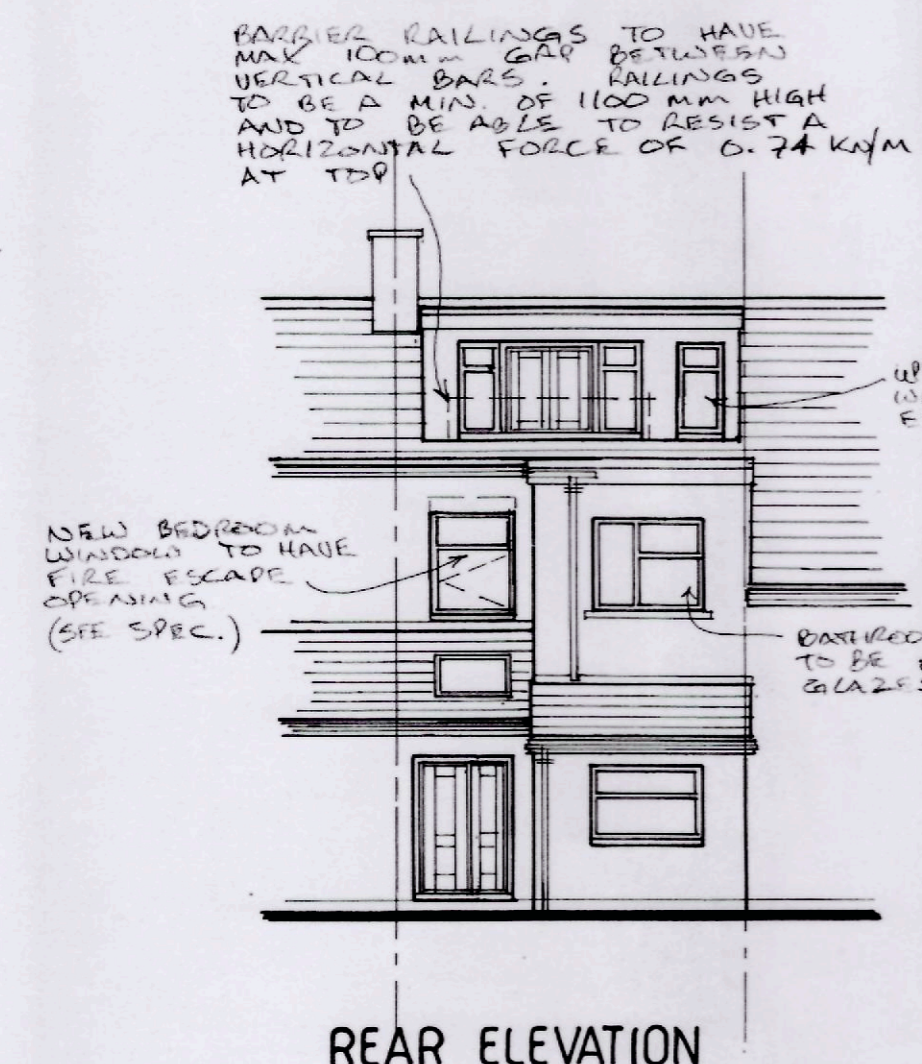 BARRIER RAILINGS TO HAVE
MAX 100mm GAP BETWEEN
VERTICAL BARS. RAILINGS
TO BE A MIN. OF 1100 MM HIGH
AND TO BE ABLE TO RESIST A
HORIZONTAL FORCE OF 0.74 KN/M
AT TOP
UP
W
E
NEW BEDROOM
WINDOW TO HAVE
FIRE ESCAPE
OPENING
(SEE SPEC.)
BATHROO
TO BE
GLAZE
REAR ELEVATION